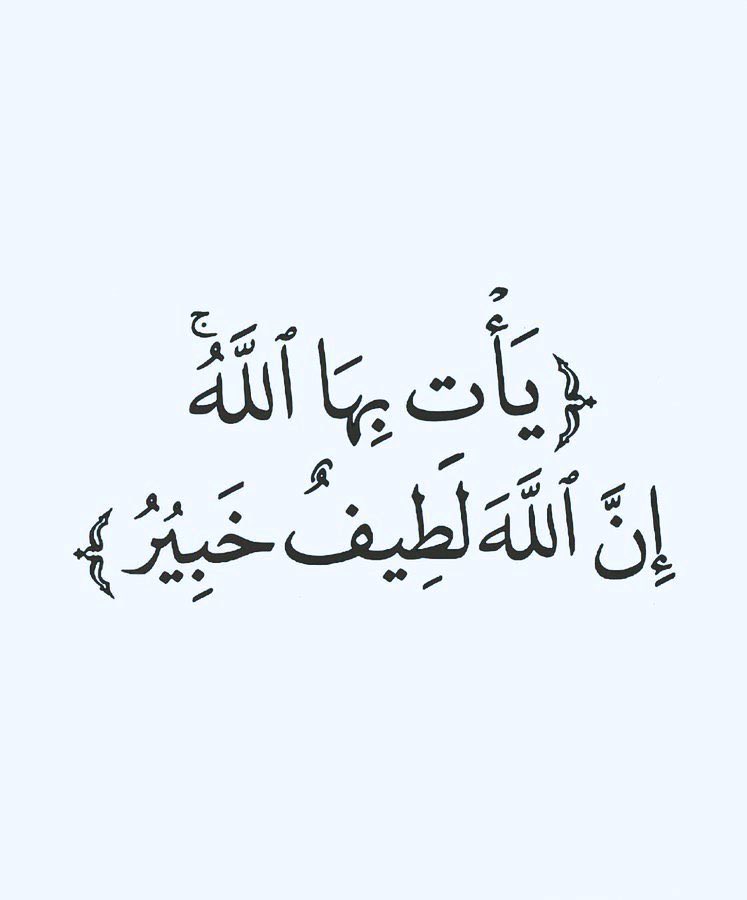 ﴿يَأْتِ بِهَا ٱللَّهُۚ
إِنَّ ٱللَّهَ لَطِيفٌ خَبِيُرُ﴾